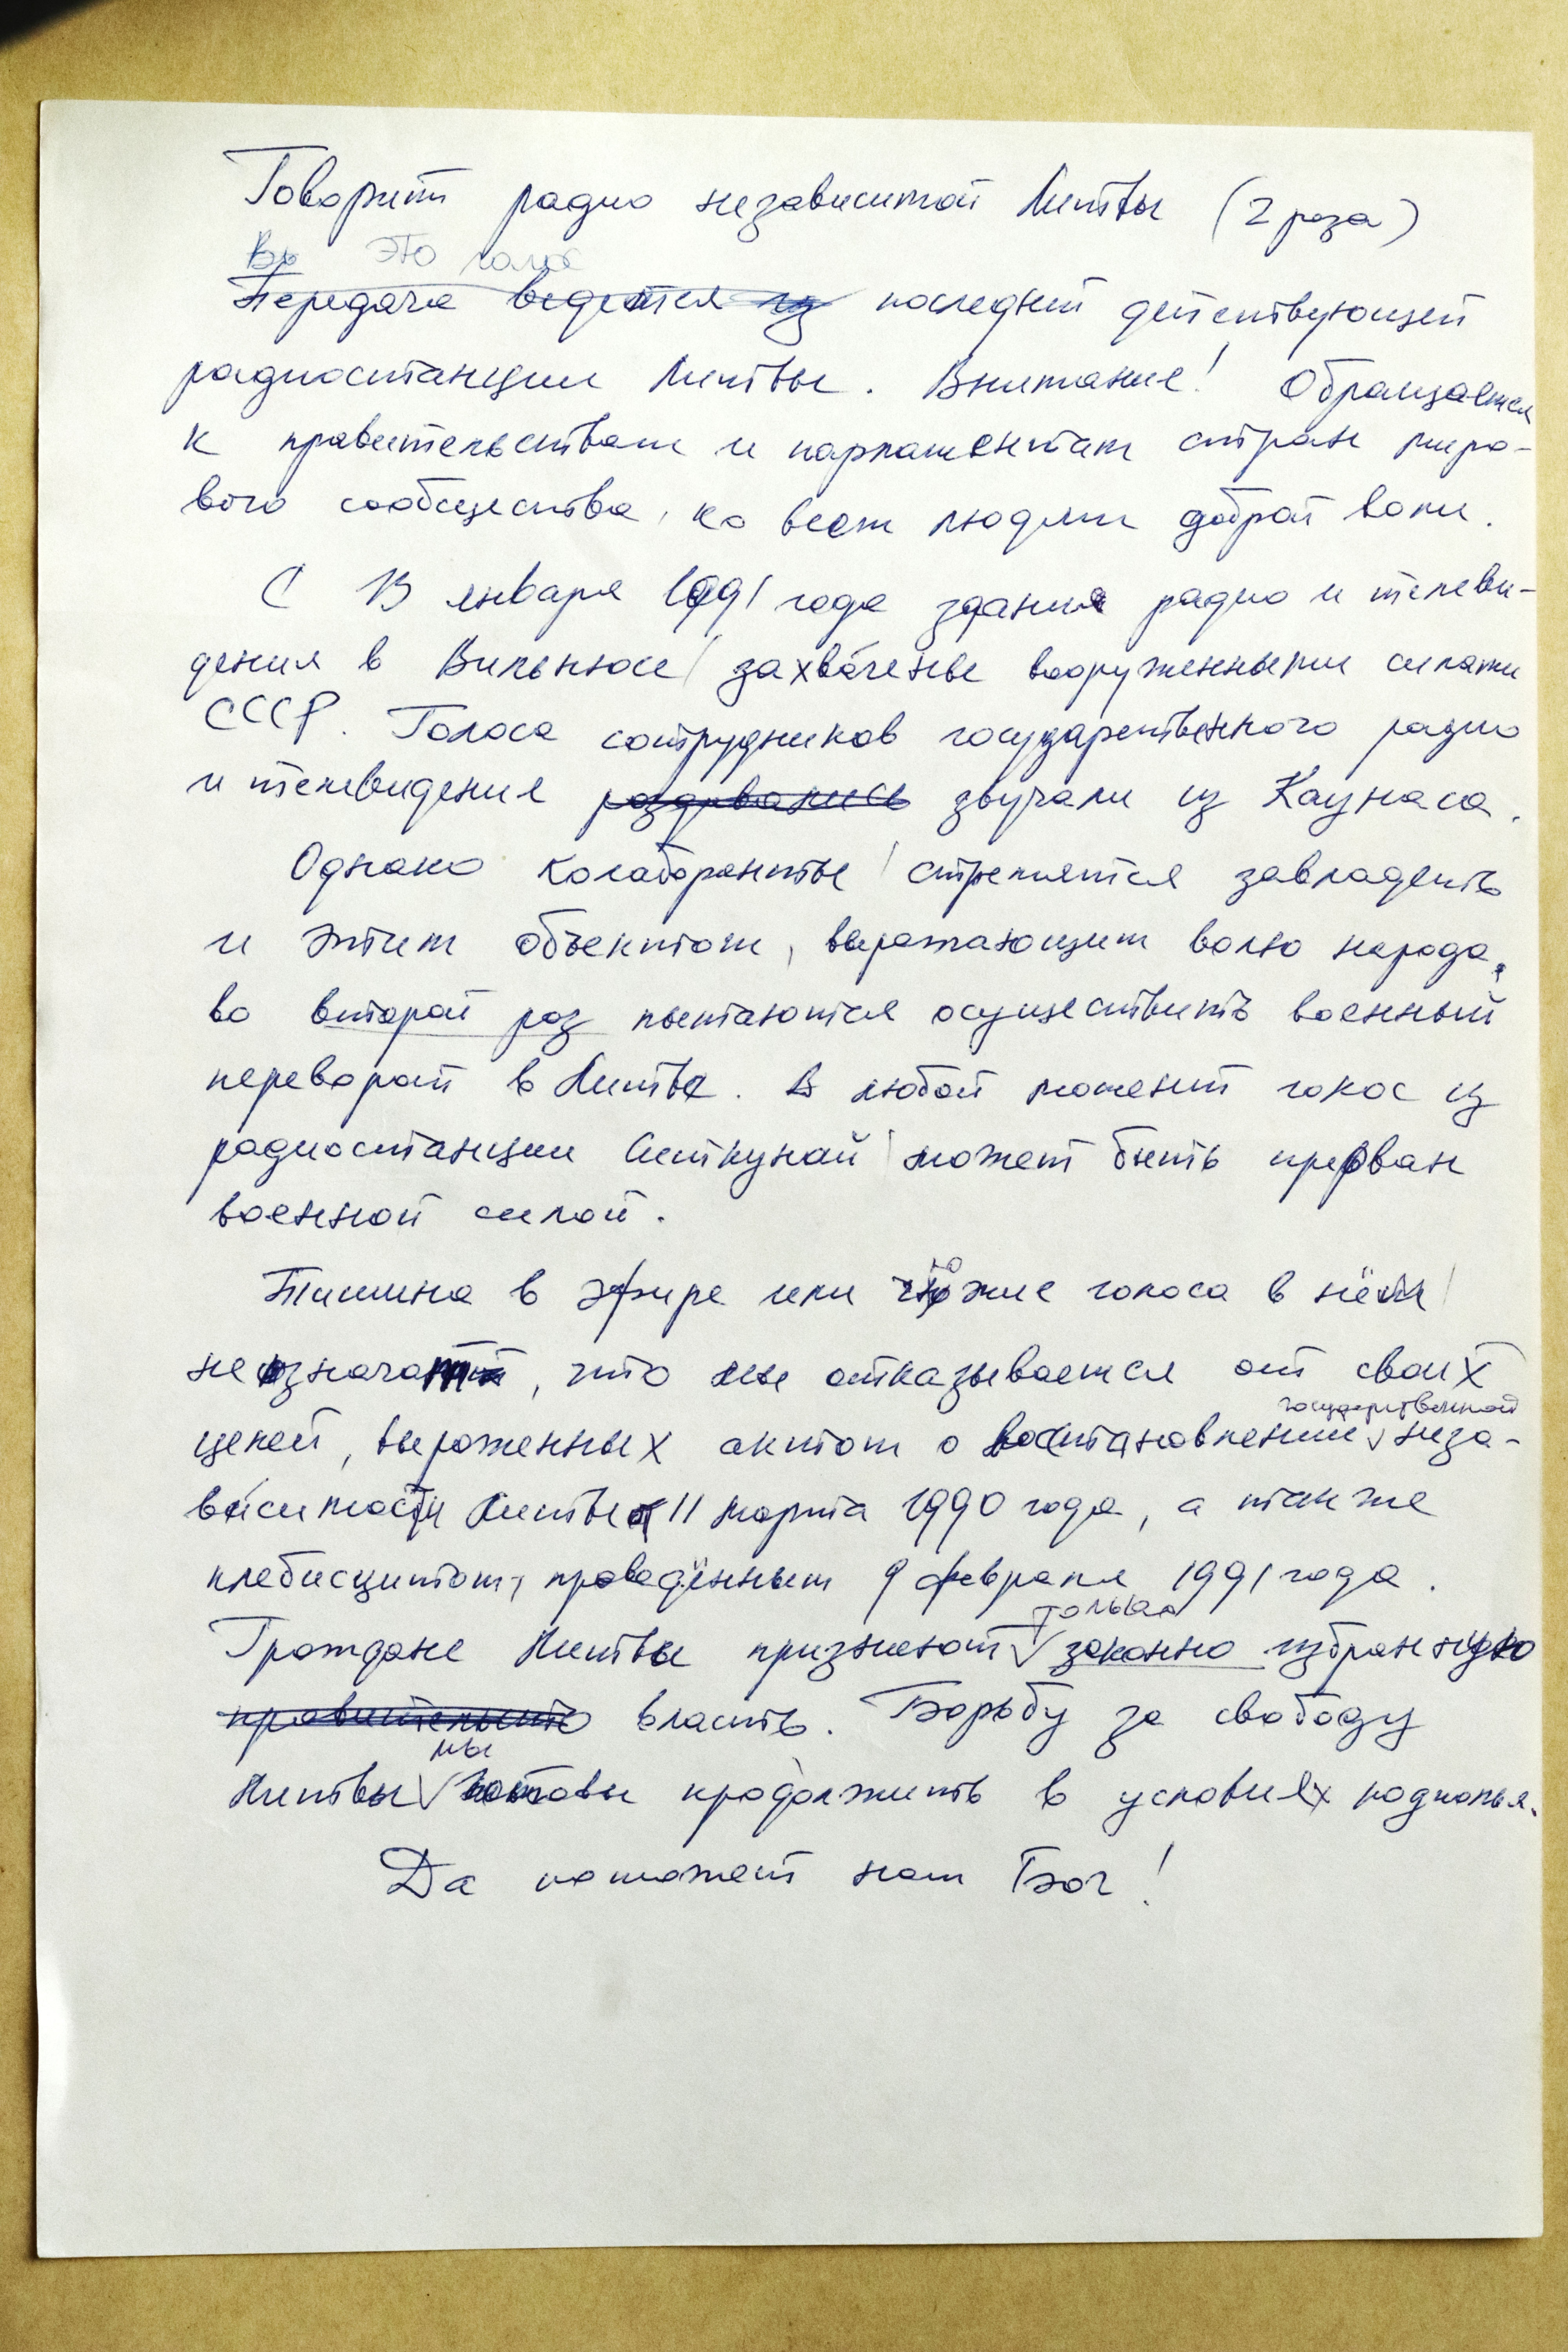 Говорит радио независимой Литвы (2 раза)
Вы это голос
Передача ведется из последней действующей
радиостанции Литвы. Внимание! Обращаемся
к правительствам и парламентам стран миро-
вого сообщества, ко всем людям доброй воли.
С 13 января 1991 года здания радио и телеви-
дения в Вильнюсе захвачены вооруженными силами
СССР. Голоса сотрудников государственного радио
и телевидения раздавались звучали из Каунаса.
Однако колаборанты стремятся завладеть
и этим объектом, выражающим волю народа,
во второй раз пытаются осуществить военный
переворот в Литве. В любой момент голос из
радиостанции Ситкунай может быть прерван
военной силой.
Тишина в эфире или чужие голоса в нём
не означают, что мы отказываемся от своих
государственной
целей, выраженных актом о восстановлении неза-
висимости Литвы от 11 марта 1990 года, а также
плебисцитом, проведённым 9 февраля 1991 года.
только
Граждане Литвы признают законно избранную
правительство власть. Борьбу за свободу
мы
Литвы готовы продолжить в условиях подполья.
Да поможет нам Бог!